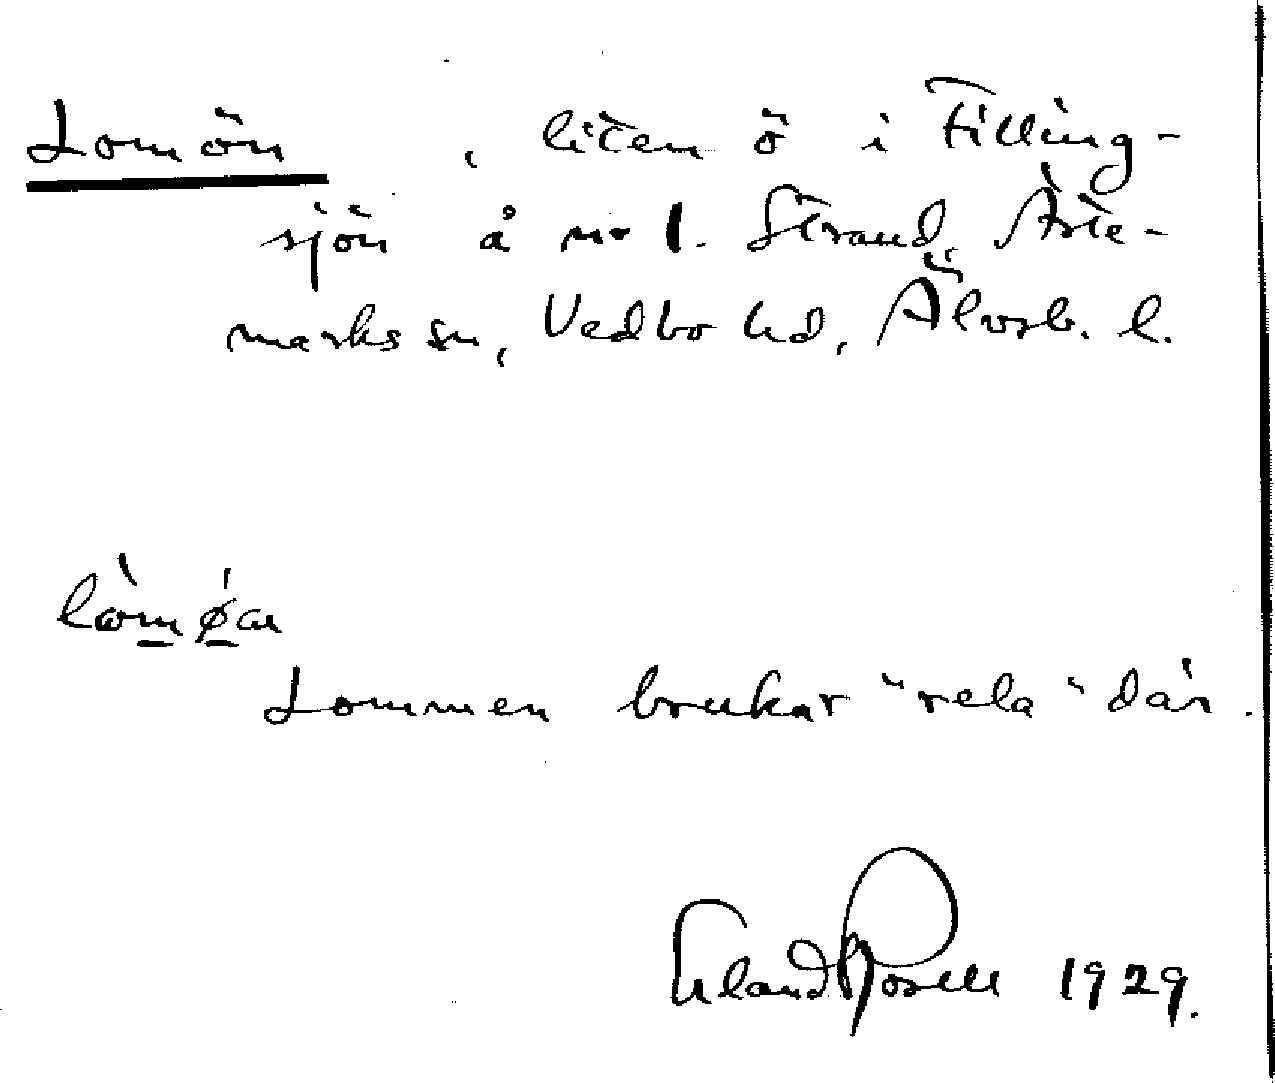 Lomön, liten ö i Tilling-
sjön å nr 1. Strand, Ärte-
marks sn, Vedbo hd, Älvsb. l.
lòmǿan
Lommen brukar "rela" där.
Erland Rosell 1929.